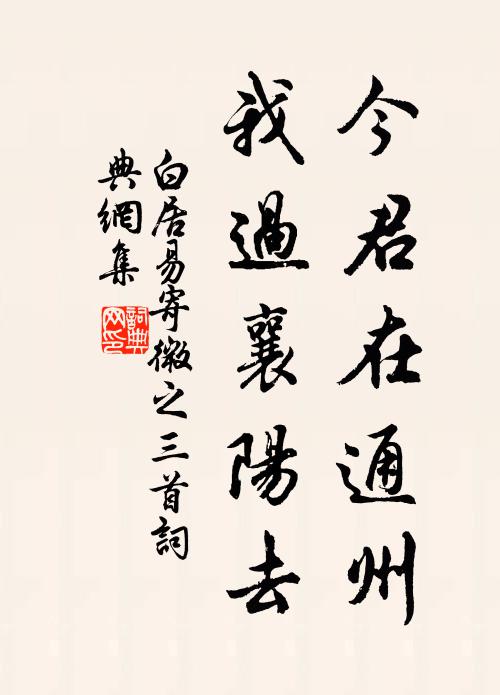 今君在通州
我過襄陽去
白居易寄微之三首詞
典網集
詞典
网印